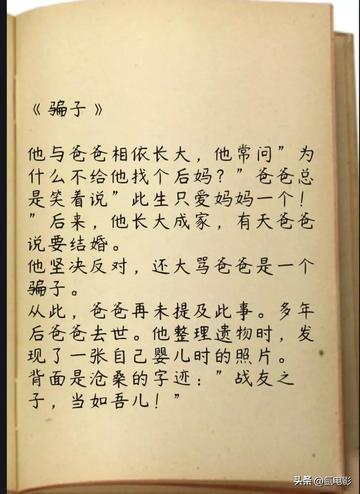 《骗子》
他与爸爸相依长大，他常问"为
什么不给他找个后妈？"爸爸总
是笑着说"此生只爱妈妈一个！
"后来，他长大成家，有天爸爸
说要结婚。
他坚决反对，还大骂爸爸是一个
骗子。
从此，爸爸再未提及此事。多年
后爸爸去世。他整理遗物时，发
现了一张自己婴儿时的照片。
背面是沧桑的字迹："战友之
子，当如吾儿！"
头条@氩电影